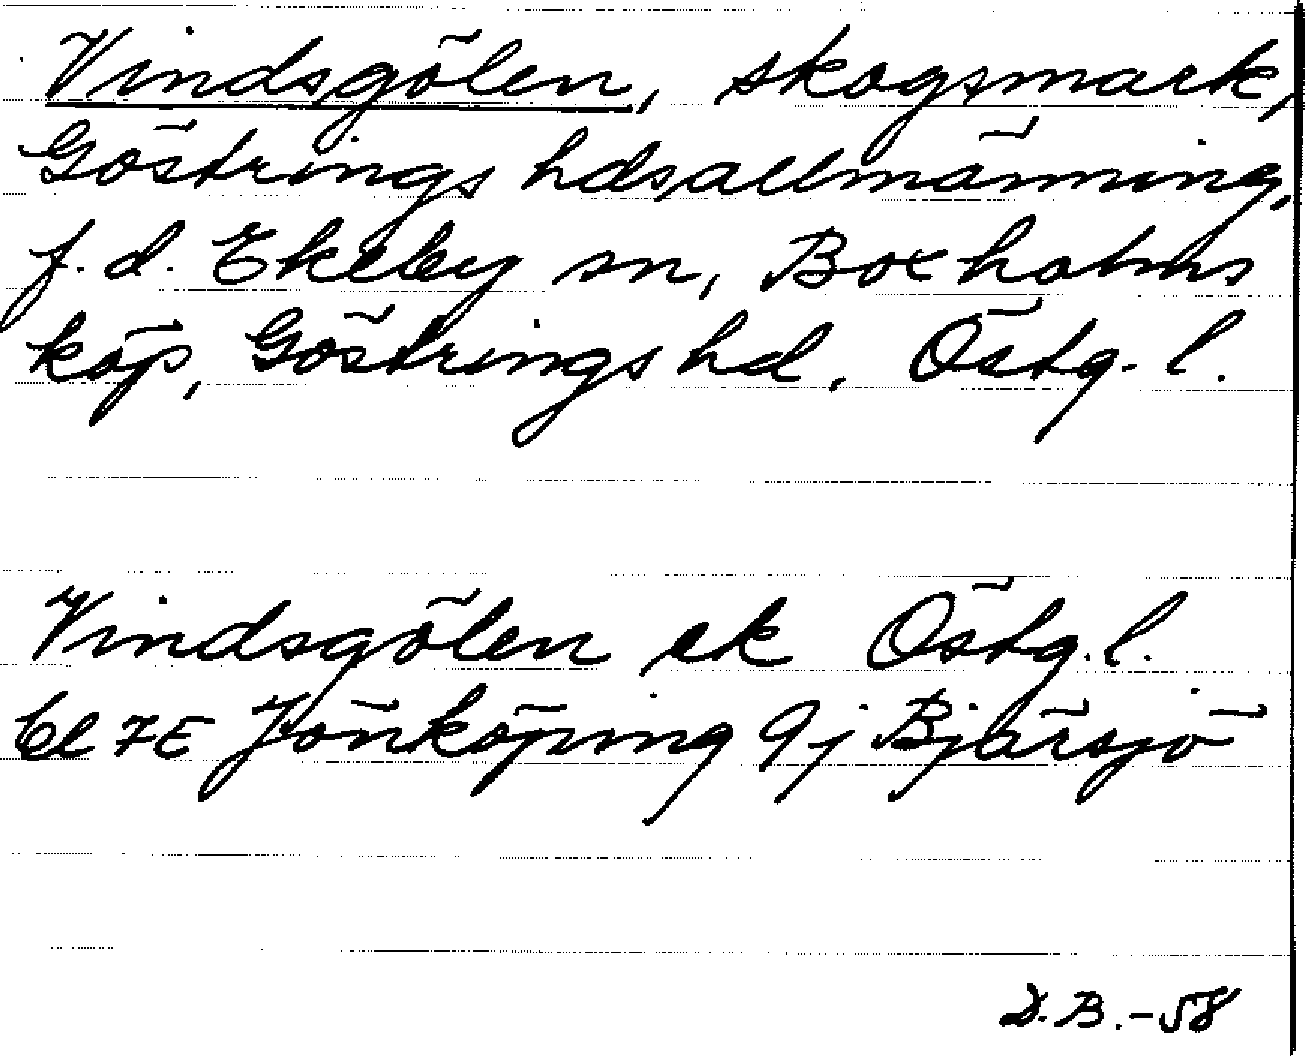 Vindsgölen, skogsmark,
Göstrings hdsallmänning,
f.d. Ekeby sn, Boxholms
köp, Göstrings hd. Östg. l.
Vindsgölen ek Östg. l.
bl 7E Jönköping 9j Bjärsjö
D.B.-58